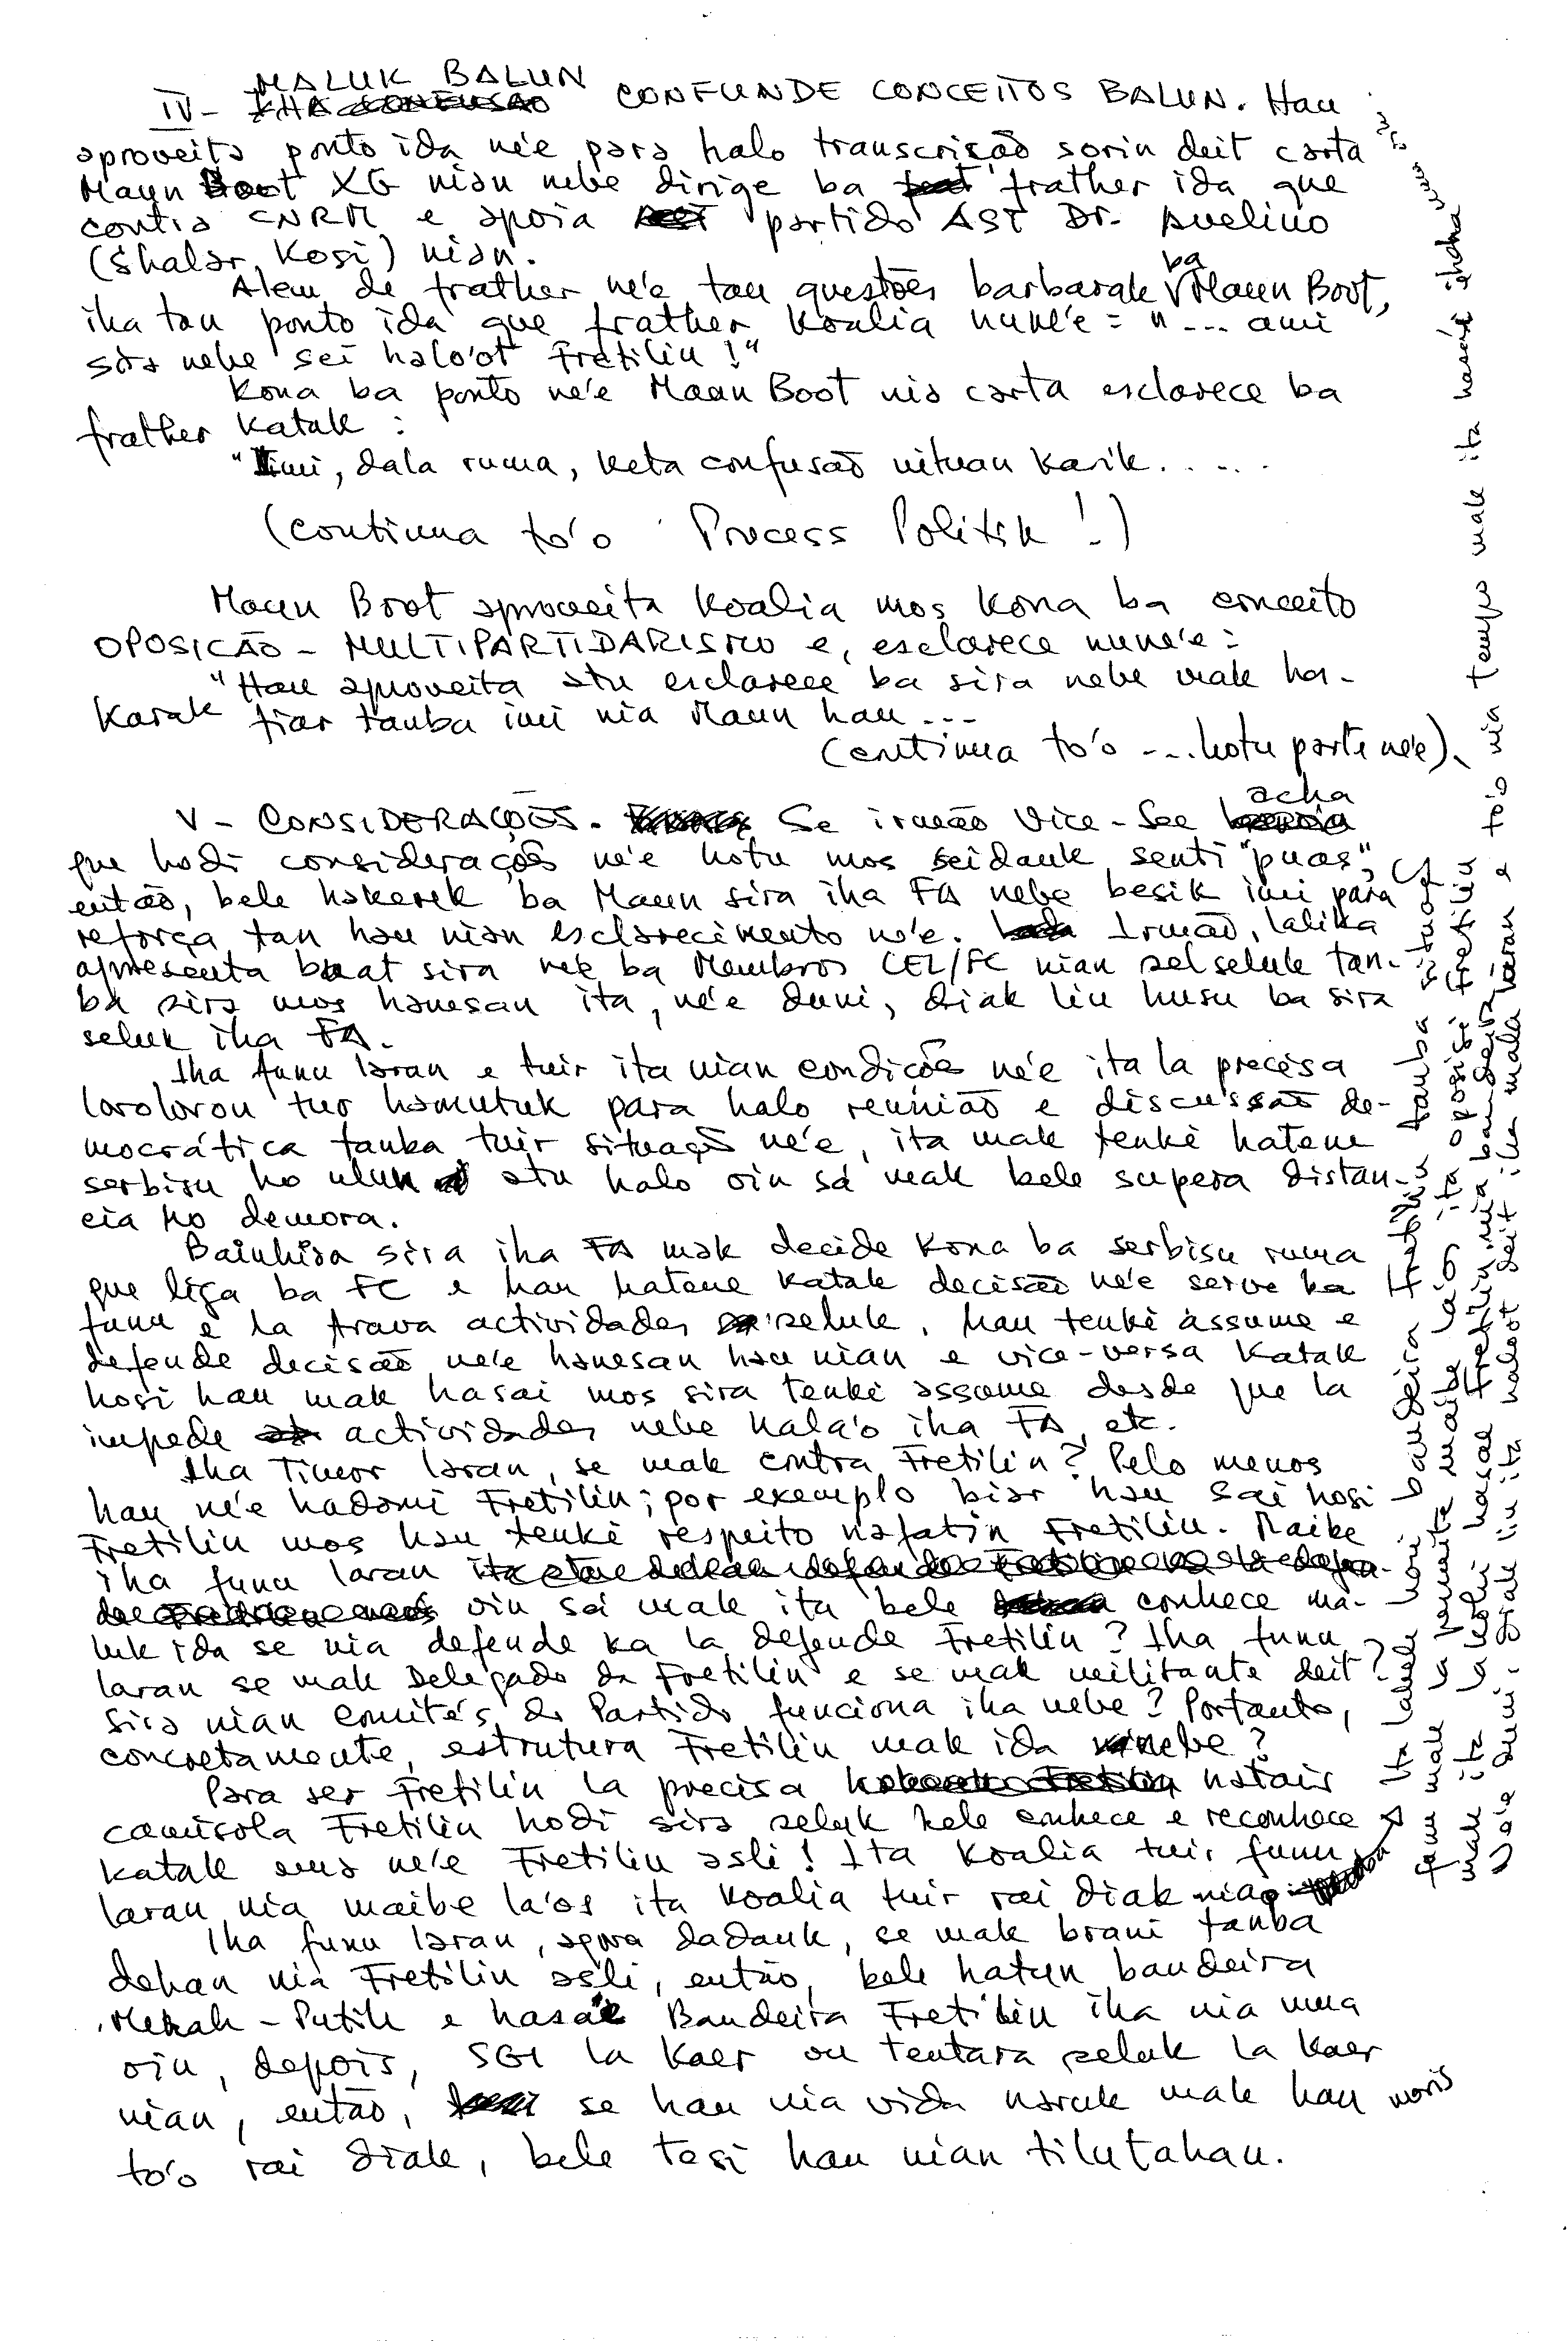 IV- MALUK BALUN CONFUNDE CONCEITOS BALUN. Hau
aproveita ponto ida ne'e para halo transcrisão sorin deit carta
Maun Boot XG nian nebe dirige ba frather ida que
contra CNRM e apoia partido AST Dr. Avelino
(Shalar Kosi) nian.
Alem de frather ne'e tau questões barbarak ba Maun Boot,
iha tan ponto ida que frather koalia nune'e = "... ami
sira nebe sei halo'ot Fretilin!"
Kona ba ponto ne'e Maun Boot nia carta esclarece ba
frather katak :
"Imi, dala ruma, keta confusão nituan karik.....
(continua to'o Process Politik!)
Maun Boot aproveita koalia mos kona ba conceito
OPOSICÃO - MULTIPARTIDARISMO e, esclarece nune'e =
"Hau aproveita atu esclarece ba sira nebe mak ha-
karak fiar tanba imi nia Maun hau ...
(continua to'o -...hotu parte ne'e).
V - CONSIDERAÇÕES. Se irmão Vice-Sec acha
que hodi considerações ne'e hotu mos seidauk senti "puas",
então, bele hakerek ba Maun sira iha FA nebe besik imi para
reforça tan hau nian esclarecimento ne'e. Irmão, lalika
apresenta buat sira ne'e ba Membros CEL/FC nian selseluk tan-
ba sira mos hanesan ita, ne'e duni, diak liu husu ba sira
seluk iha FA.
Iha funu laran e tuir ita nian condições ne'e ita la precisa
loroloron tur hamutuk para halo reunião e discussão de-
mocrática tanba tuir situação ne'e, ita mak tenke hatene
serbisu ho ulun atu halo oin sá mak bele supera distan-
cia ho demora.
Bainhira sira iha FA mak decide kona ba serbisu ruma
que liga ba FC e hau hatene katak decisão ne'e serve ba
funu e la trava actividades seluk, hau tenke assume e
defende decisão ne'e hanesan hau nian e vice-versa katak
hosi hau mak hasai mos sira tenke assume desde que la
impede actividades nebe hala'o iha FA, etc.
Iha Timor laran, se mak contra Fretilin? Pelo menos
hau ne'e hadomi Fretilin; por exemplo biar hau sai hosi
Fretilin mos hau tenke respeito nafatin Fretilin. Maibe
iha funu laran oin sá mak ita bele conhece ma-
luk ida se nia defende ka la defende Fretilin? Iha funu
laran se mak Delegado da Fretilin e se mak militante deit?
Sira nian comités do Partido funciona iha nebe? Portanto,
concretamente, estrutura Fretilin mak ida nebe?
Para ser Fretilin la precisa hatais
camisola Fretilin hodi sira seluk bele conhece e reconhece
katak ema ne'e Fretilin asli! Ita koalia tuir funu
laran nia maibe la'os ita koalia tuir rai diak nia.
Iha funu laran, agora dadauk, se mak brani tanba
dehan nia Fretilin asli, então, bele hatun bandeira
Merah-Putih e hasa'e Bandeira Fretilin iha nia uma
oin, depois, SGI la kaer ou tentara seluk la kaer
nian, então, se hau nia vida naruk mak hau moris
to'o rai diak, bele tesi hau nian tilutahan.
Ita labele hori bandeira Fretilin tanba situação
funu mak permite maibe la'ós ita oposisi Fretilin
mak ita lakohi hasae Fretilin nia bandeira
Ne'e duni, diak liu ita haloot deit iha mala laran e to'o nia tempo mak ita hasae